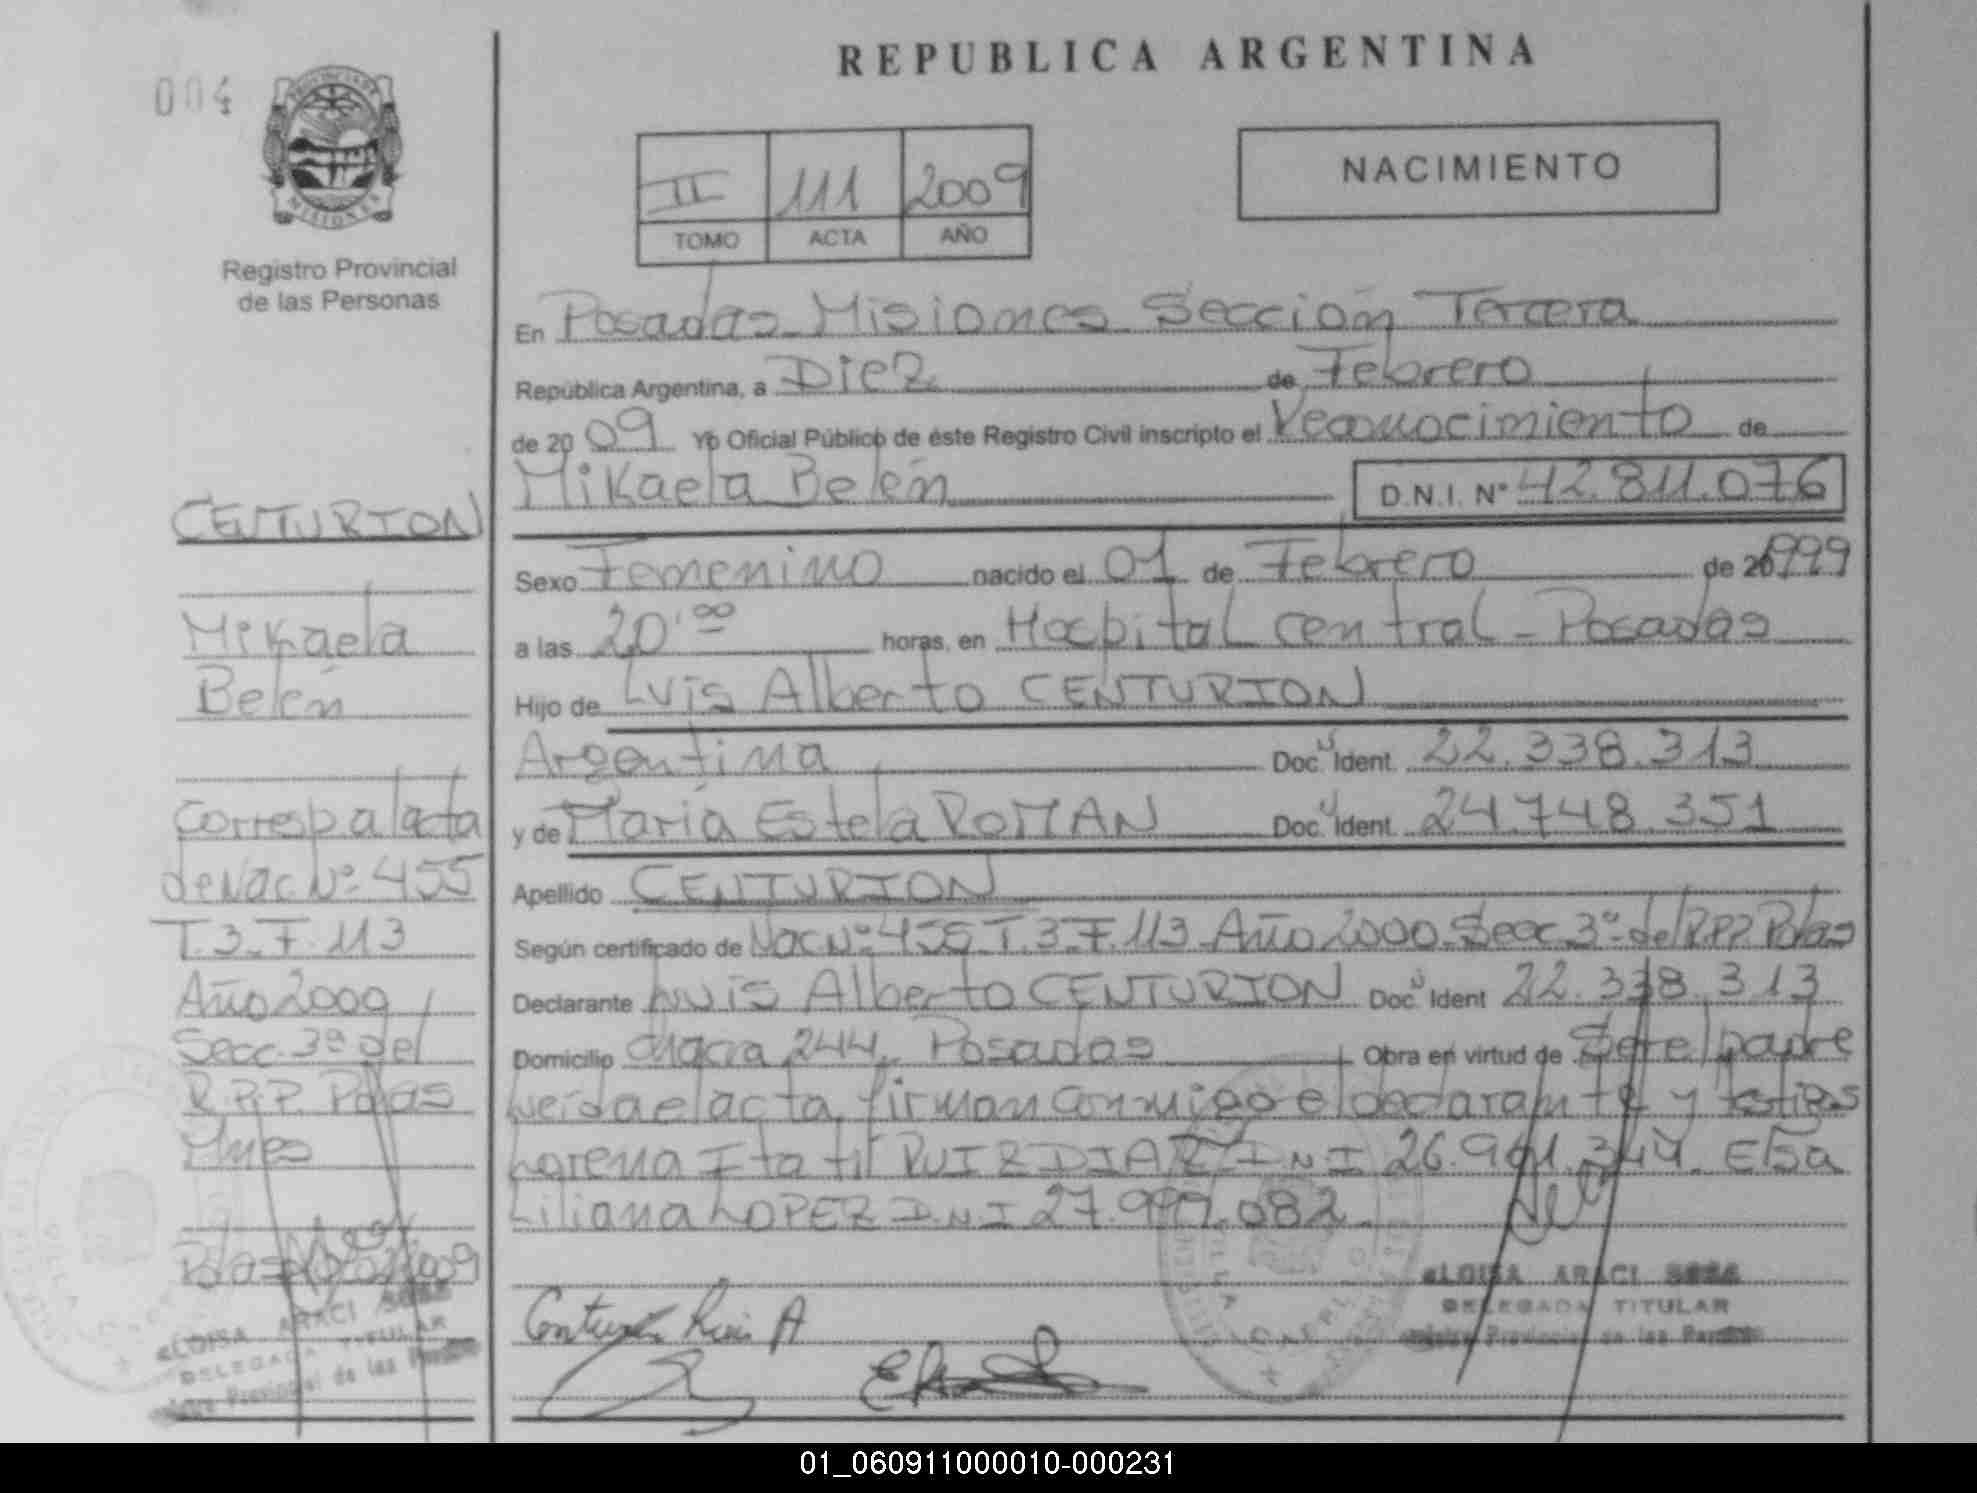 004
PROVINCIA DE
MISIONES
Registro Provincial
de las Personas
CENTURION
Mikaela
Belén
Corresp al acta
de Nac Nº 455
T. 3 - F. 113
Año 2000
Secc. 3ª del
R.P.P. Pdas
Mnes
ARACI
DELEGADA TITULAR
Provincial de las
REPUBLICA ARGENTINA
II 111 2009
TOMO ACTA AÑO
NACIMIENTO
En Posadas Misiones Sección Tercera
República Argentina, a Diez de Febrero
de 2009 Yo Oficial Público de éste Registro Civil inscripto el Reconocimiento de
Mikaela Belén D.N.I. Nº 42.811.076
Sexo Femenino nacido el 01 de Febrero de 1999
a las 20,00 horas, en Hospital Central - Posadas
Hijo de Luis Alberto CENTURION
Argentina Doc. Ident. 22.338.313
y de María Estela ROMAN Doc. Ident. 24.748.351
Apellido CENTURION
Según certificado de Nac Nº 455 T. 3 - F. 113 Año 2000 Secc 3ª del R.P.P. Pdas
Declarante Luis Alberto CENTURION Doc. Ident 22.338.313
Domicilio chacra 244 Posadas Obra en virtud de Ser el padre
Leída el acta, firman conmigo el declarante y testigos
Lorena Itatí RUIZ DIAZ D.N.I 26.961.347 Elsa
Liliana LOPEZ D.N.I 27.999.082
ARACI
DELEGADA TITULAR
Provincial de las
Centurión Luis A
01_060911000010-000231